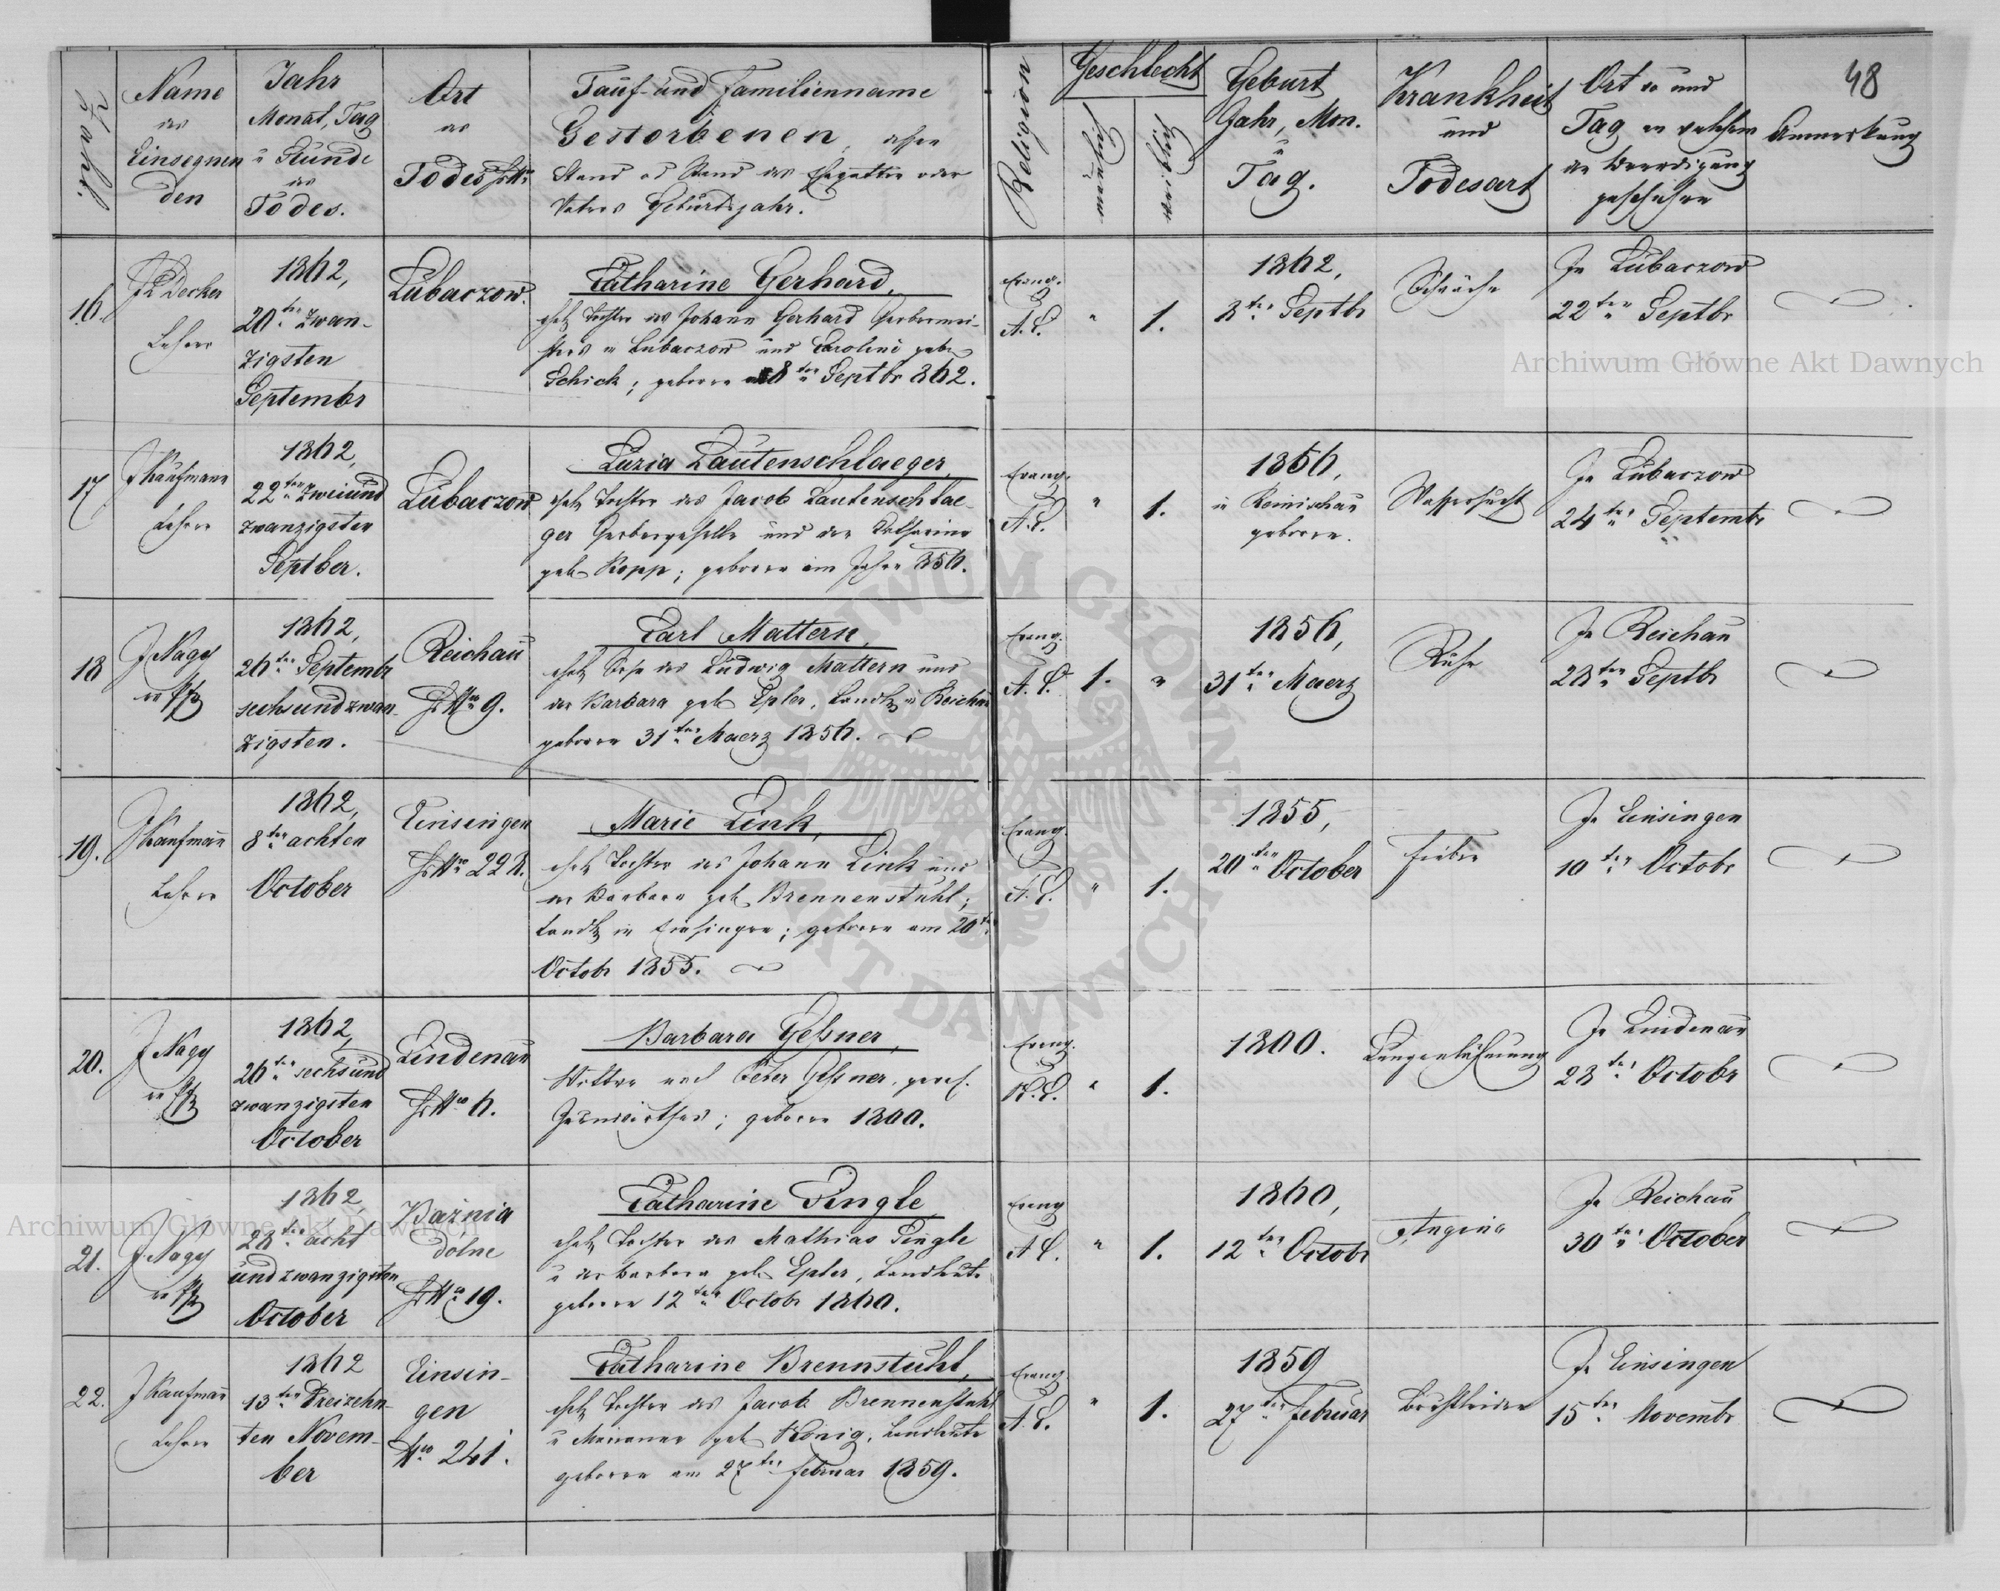 48
Zahl.
Name
des
Einsegnen
den
Jahr
Monat, Tag
u Stunde
des
Todes.
Ort
des
Todes
Tauf- und Familienname
Gestorbenen,
Stand od Stand des Ehegatten oder
Vaters Geburtsjahr.
Religion
Geschlecht
männlich
weiblich
Geburt
Jahr, Mon.
u
Tag.
Krankheit
und
Todesart
Ort wo und
Tag an welchem
die Beerdigung
geschehen
Anmerkung
16.
Decker
Lehrer
1862,
20ten zwan-
zigsten
Septembr
Lubaczow.
Catharine Gerhard,
ehel. Tochter des Johann Gerhard Gerbermei-
sters in Lubaczow und Caroline geb.
Schick; geboren 8ten Septbr 862.
Evang.
A. C.
"
1.
1862,
8ten Septbr
Schwäche
In Lubaczow
22ten Septbr
17
J Kaufmann
Lehrer
1862,
22ten zweiund
zwanzigsten
Septber.
Lubaczow
Luzia Lautenschlaeger,
ehel. Tochter des Jacob Lautenschlae-
ger Gerbergeselle und der Catharina
geb. Kopp; geboren im Jahre 856.
Evang.
A. C.
"
1.
1856,
in Reinischau
geboren.
Wassersucht
In Lubaczow
24ten Septembr
18
J Nagy
ev Pfr
1862,
26ten Septembr
sechsundzwan-
zigsten.
Reichau
Hs Nro 9.
Carl Mattern,
ehel. Sohn des Ludwig Mattern und
der Barbara geb. Epler, Landl. in Reichau
geboren 31ten Maerz 1856.
Evang.
A. C.
1.
"
1856,
31ten Maerz
Ruhr
In Reichau
28ten Septbr
19.
J Kaufmann
Lehrer
1862,
8ten achten
October
Einsingen
Hs Nro 228.
Marie Link,
ehel. Tochter des Johann Link und
der Barbara geb. Brennenstuhl;
Landl. in Einsingen; geboren am 20ten
Octobr 1855.
Evang.
A. C.
"
1.
1855,
20ten October
Fieber
In Einsingen
10ten Octobr
20.
J Nagy
ev Pfr
1862,
26ten sechsund
zwanzigsten
October
Lindenau
Hs Nro 6.
Barbara Geßner,
Wittwe nach Peter Geßner,
geboren 1800.
Evang.
"
1.
1800.
Lungenlähmung
In Lindenau
28ten Octobr
21.
J. Nagy
ev Pfr
1862,
28ten acht
und zwanzigsten
October
Basnia
dolne
Hs Nro 19.
Catharine Pingle,
ehel. Tochter des Mathias Pingle
u der Barbara geb. Epler, Landleute
geboren 12ten Octobr 1860.
Evang
A C.
"
1.
1860,
12ten Octobr
Angina
In Reichau
30ten October
22.
J Kaufmann
Lehrer
1862
13ten Dreizehn-
ten Novem-
ber
Einsin-
gen
Nro 241.
Catharine Brennstuhl,
ehel. Tochter des Jacob Brennenstuhl
u Marianne geb. König, Landleute
geboren am 27ten Februar 1859.
Evang.
A. C.
"
1.
1859
27ten Februar
Brustleiden
In Einsingen
15ten Novembr
Archiwum Główne Akt Dawnych
Archiwum Główne Akt Dawnych
ARCHIWUM GŁÓWNE
AKT DAWNYCH